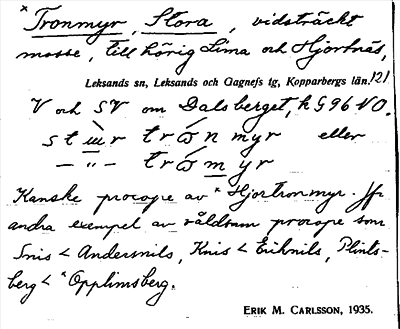 ×Tronmyr, Stora, vidsträckt
mosse, tillhörig Lima och Hjortnäs,
Leksands sn, Leksands och Gagnefs tg, Kopparbergs län. 121
V och SV om Dalsberget, k G 96 NO.
stɯ̀r trón myr eller
— „ — tró m yr
Kanske procope av *Hjortronmyr. Jfr
andra exempel av våldsam procope som
Snis < Andersnils, Knis < Eriknils, Plints-
berg < *Opplimsberg.
ERIK M. CARLSSON, 1935.